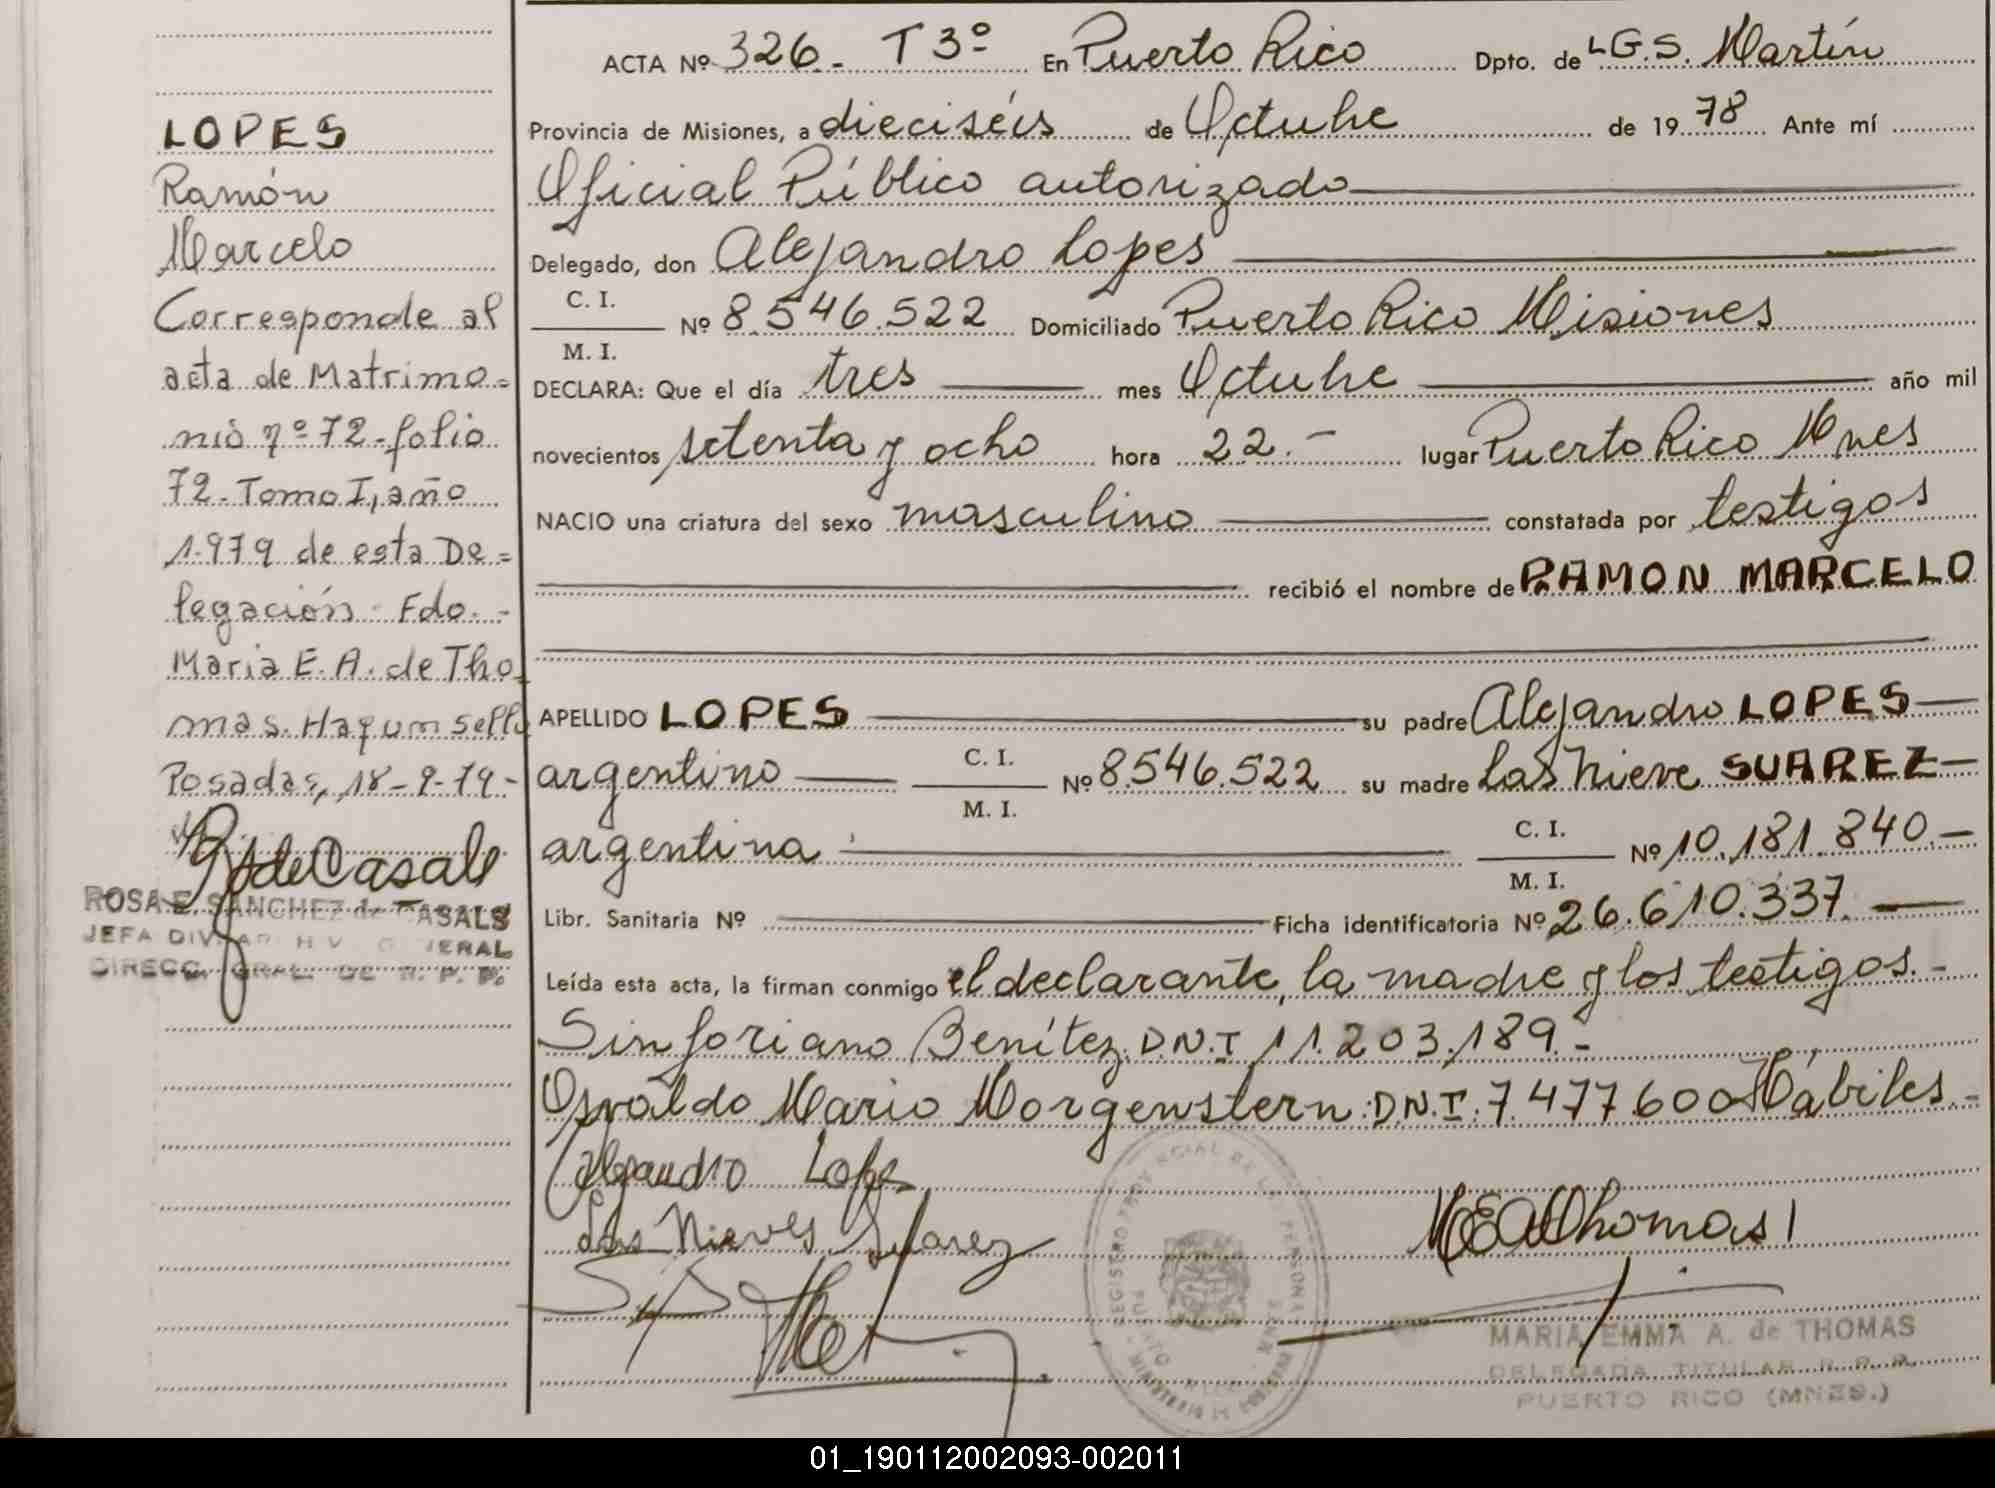 LOPES
Ramón
Marcelo
Corresponde al
acta de Matrimo=
nio nº 72-folio
72-Tomo I, año
1.979 de esta De=
legación- Fdo.-
Maria E. A. de Tho
mas. Hay un sello
Posadas, 18-9-79-
ROSA E. SANCHEZ de CASALS
JEFA DIV. GENERAL
DIRECC. GRAL. DE R. P. P.
ACTA Nº 326.- T 3º En Puerto Rico Dpto. de L.G.S. Martín
Provincia de Misiones, a dieciséis de Octubre de 1978 Ante mí
Oficial Público autorizado
Delegado, don Alejandro Lopes
C. I.
Nº 8.546.522 Domiciliado Puerto Rico Misiones
M. I.
DECLARA: Que el día tres mes Octubre año mil
novecientos setenta y ocho hora 22.- lugar Puerto Rico Mnes
NACIO una criatura del sexo masculino constatada por testigos
recibió el nombre de RAMON MARCELO
APELLIDO LOPES su padre Alejandro LOPES
argentino C. I. Nº 8.546.522 su madre Las Nieve SUAREZ
M. I.
argentina C. I. Nº 10.181.840.-
M. I.
Libr. Sanitaria Nº Ficha identificatoria Nº 26.610.337.
Leída esta acta, la firman conmigo el declarante, la madre y los testigos.-
Sinforiano Benítez D.N.I 11.203.189.-
Osvaldo Mario Morgenstern D.N.I. 7.477.600 Hábiles.-
Alejandro Lopes
Las Nieves Suarez
MEAdThomas
MARIA EMMA A. de THOMAS
DELEGADA TITULAR R. P. P.
PUERTO RICO (MNES.)
01_190112002093-002011